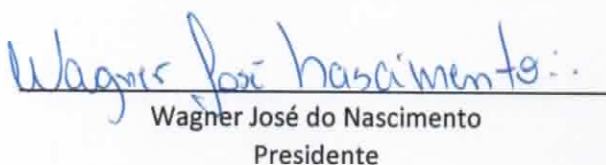 Wagner José Nascimento:.
Wagner José do Nascimento
Presidente